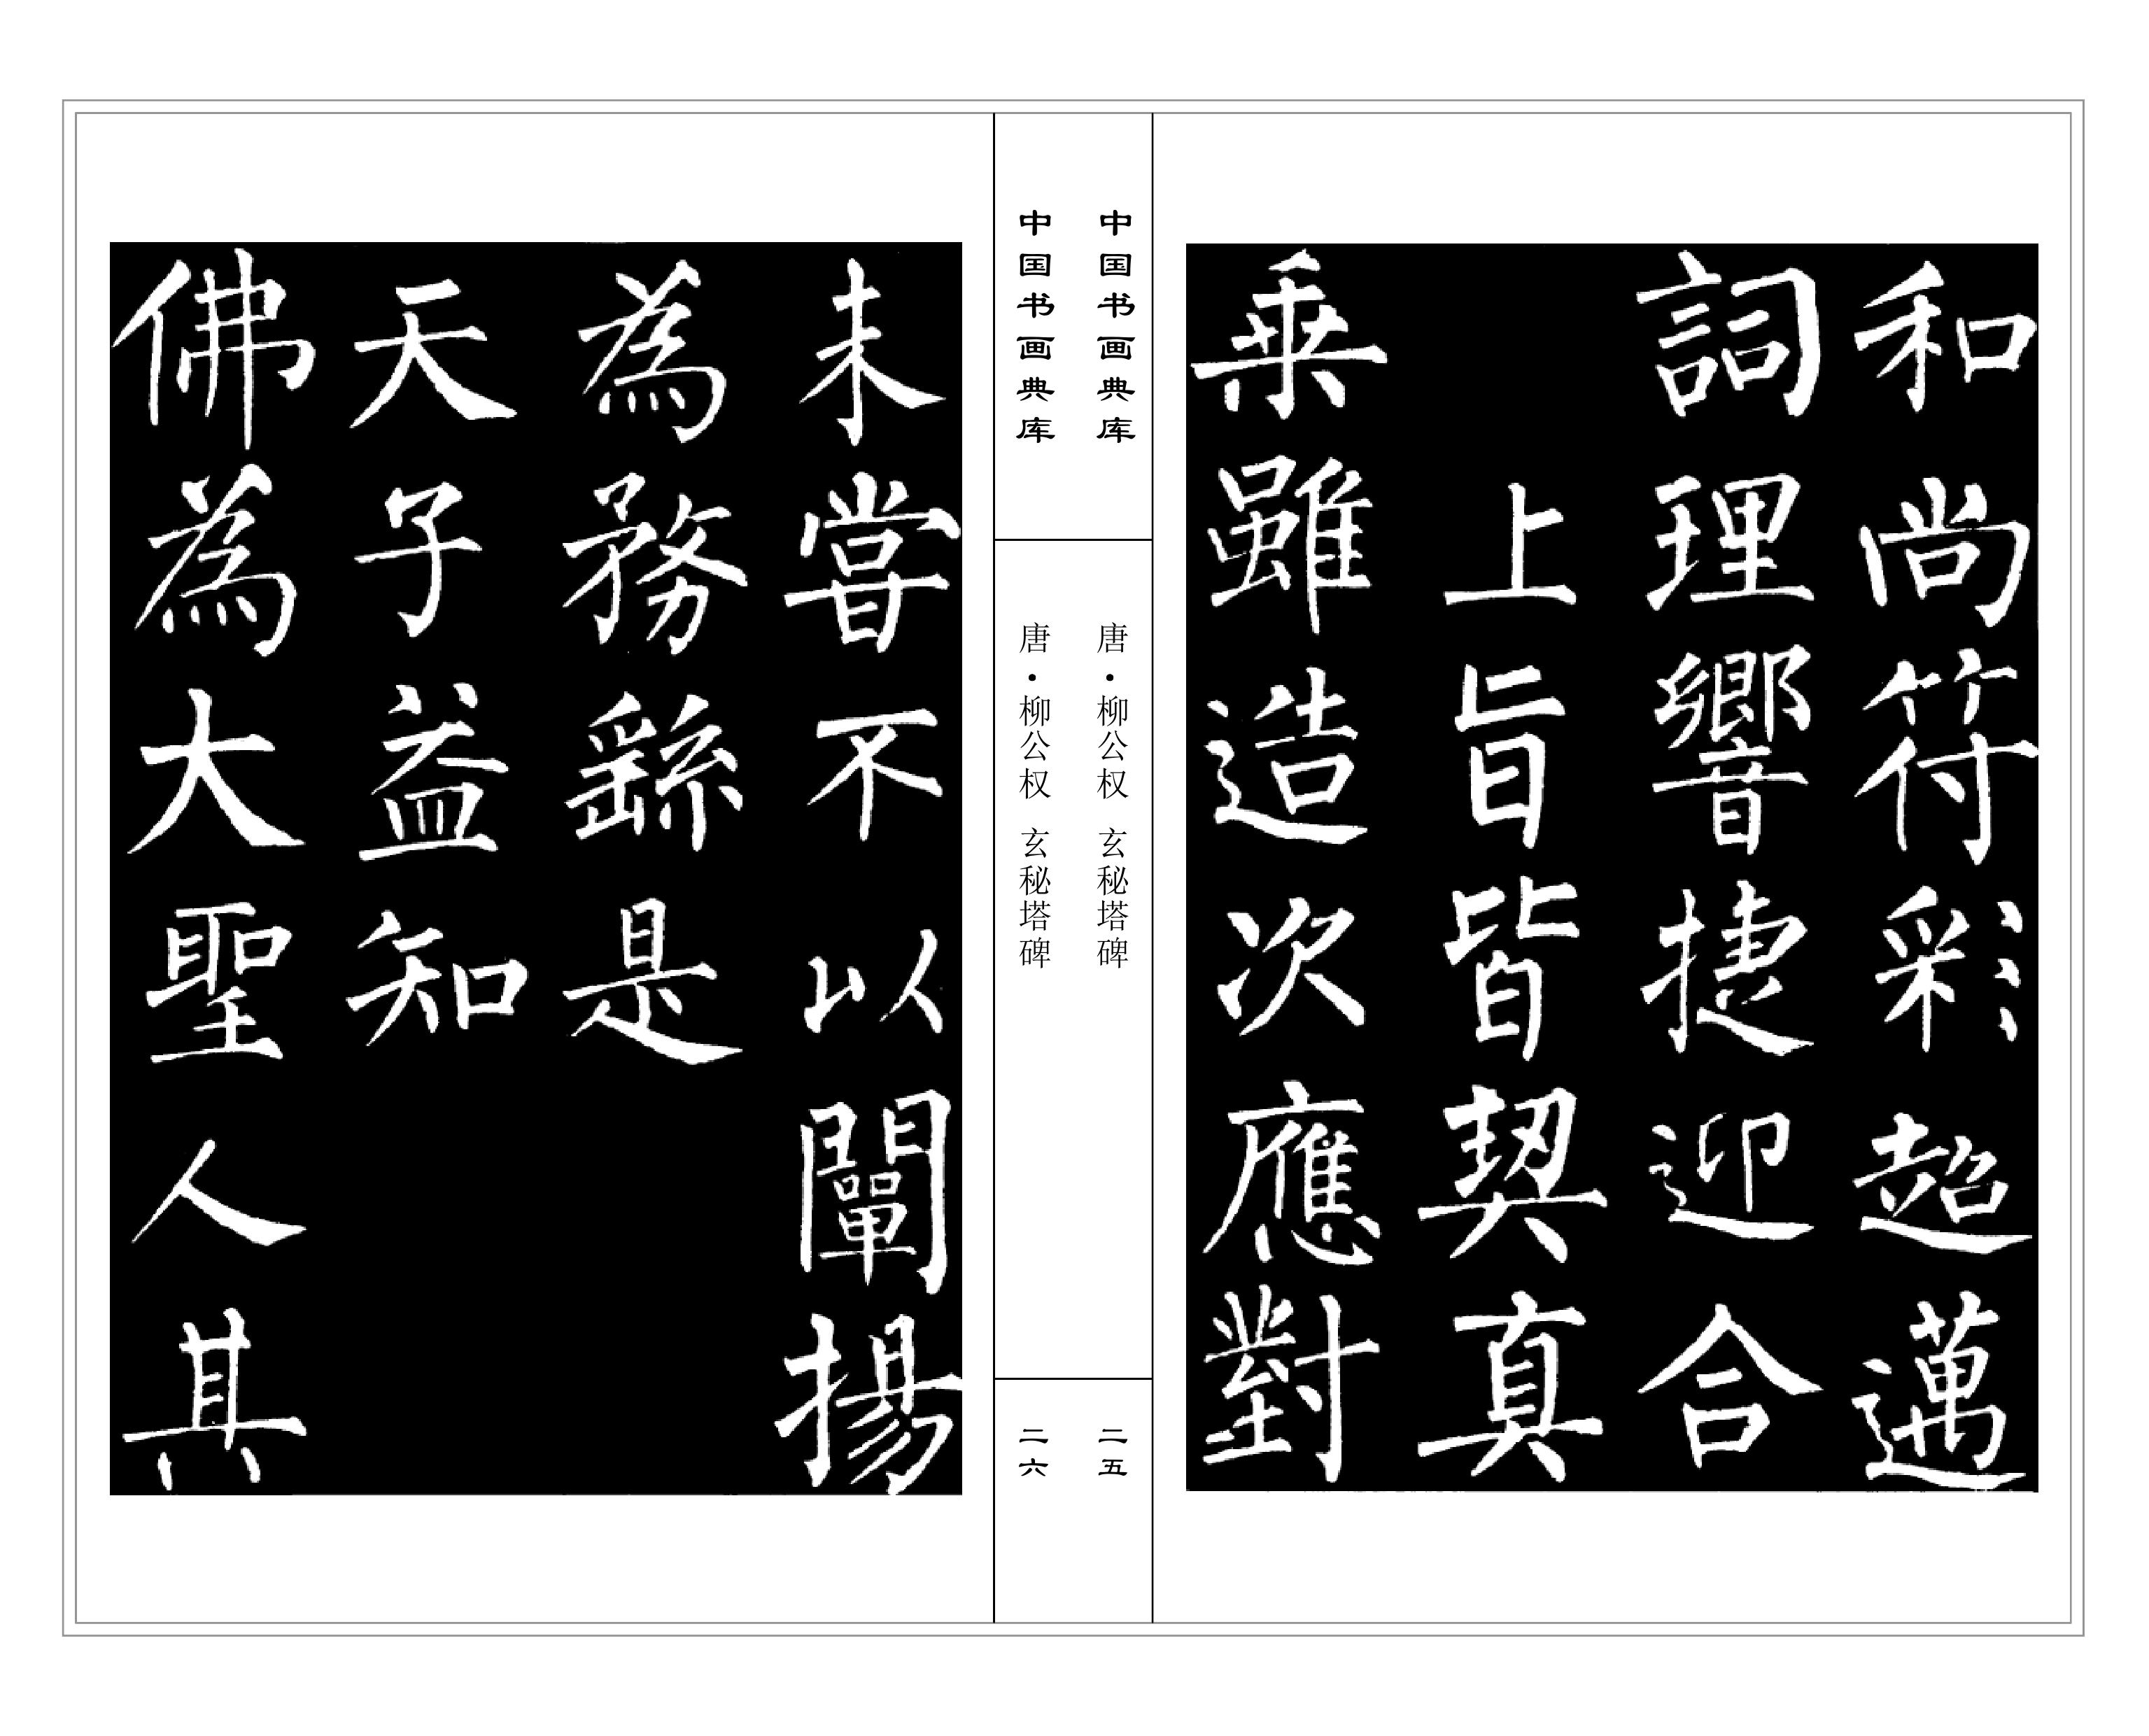 和尚符彩超邁
詞理響捷迎合
上旨皆契真
乘雖造次應對
中国书画典库
唐·柳公权 玄秘塔碑
二五
中国书画典库
唐·柳公权 玄秘塔碑
二六
未嘗不以闡揚
為務繇是
天子益知
佛為大聖人其